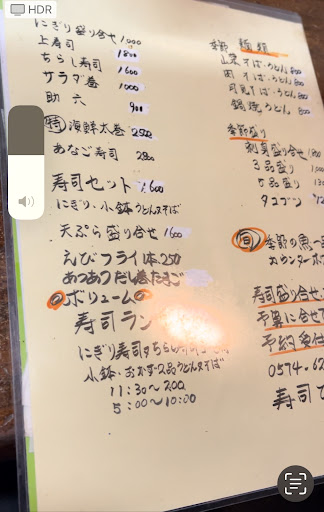 HDR
にぎり盛り合せ 1,000
上寿司 1800
ちらし寿司 1600
サラダ巻 1000
助六 900
特 海鮮太巻 2500
あなご寿司
寿司セット 1,600
にぎり・小鉢うどん又そば
天ぷら盛り合せ 1600
えびフライ1本250
あつあつだし巻たまご
ボリューム
寿司ラン
にぎり寿司又ちらし寿司
小鉢・おかず2品うどん又そば
11:30〜2:00
5:00〜10:00
麺類
山菜そば・うどん 800
肉そば・うどん 800
月見そば・うどん
鍋焼うどん 800
季節盛り
刺身盛り合せ
3品盛り
5品盛り
タコブツ
旬 季節の魚一品
カウンターボ
寿司盛り合せ
予算に合せて
予約受付
0574.62
寿司